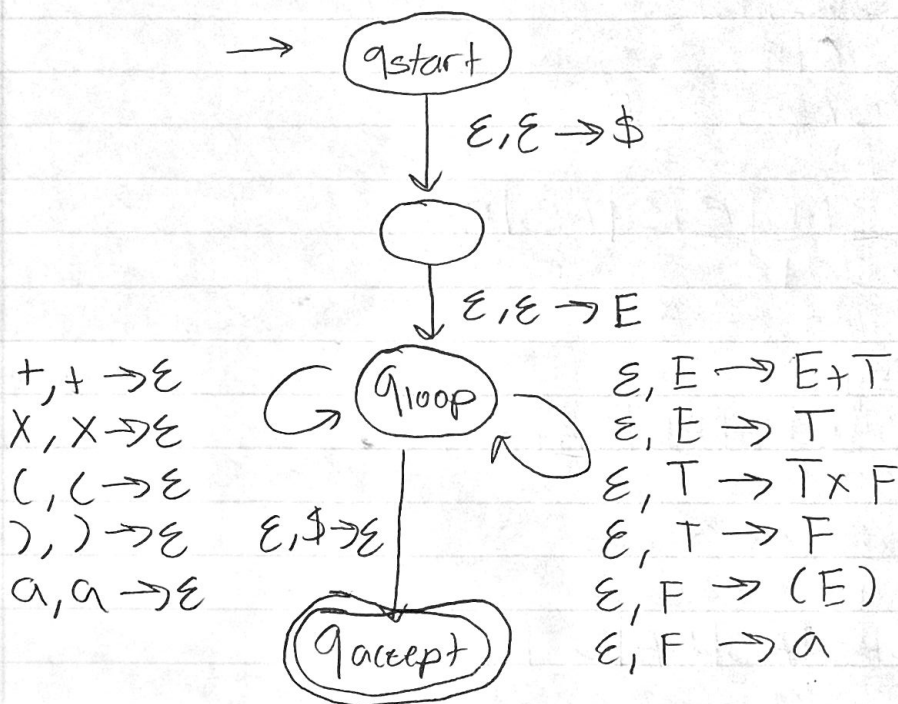 qstart
ε, ε → $
ε, ε → E
+, + → ε
x, x → ε
(, ( → ε
), ) → ε
a, a → ε
qloop
ε, E → E+T
ε, E → T
ε, T → T x F
ε, T → F
ε, F → (E)
ε, F → a
ε, $ → ε
qaccept